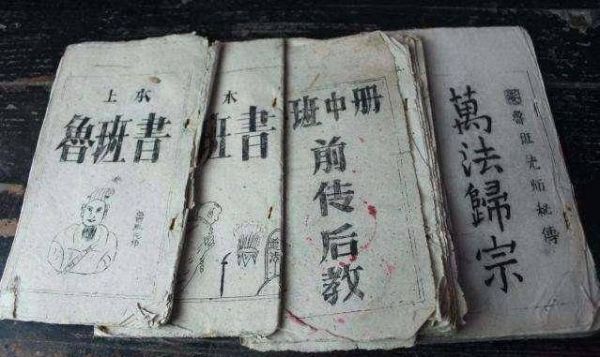 上木
魯班書
木
班書
班中册
前传后教
魯班先師秘傳
萬法歸宗